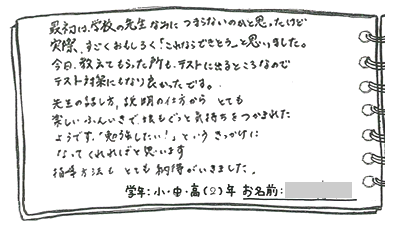 最初は、学校の先生なみにつまらないのかと思ったけど
実際、すごくおもしろく「これならできそう」と思いました。
今日、教えてもらった所も、テストに出るところなので
テスト対策にもなり良かったです。
先生の話し方、説明の仕方から とても
楽しいふんいきで娘もぐっと気持ちをつかまれた
ようです。「勉強したい!」という きっかけに
なってくれればと思います
指導方法も とても納得がいきました。
学年:小・中・高(2)年 お名前: